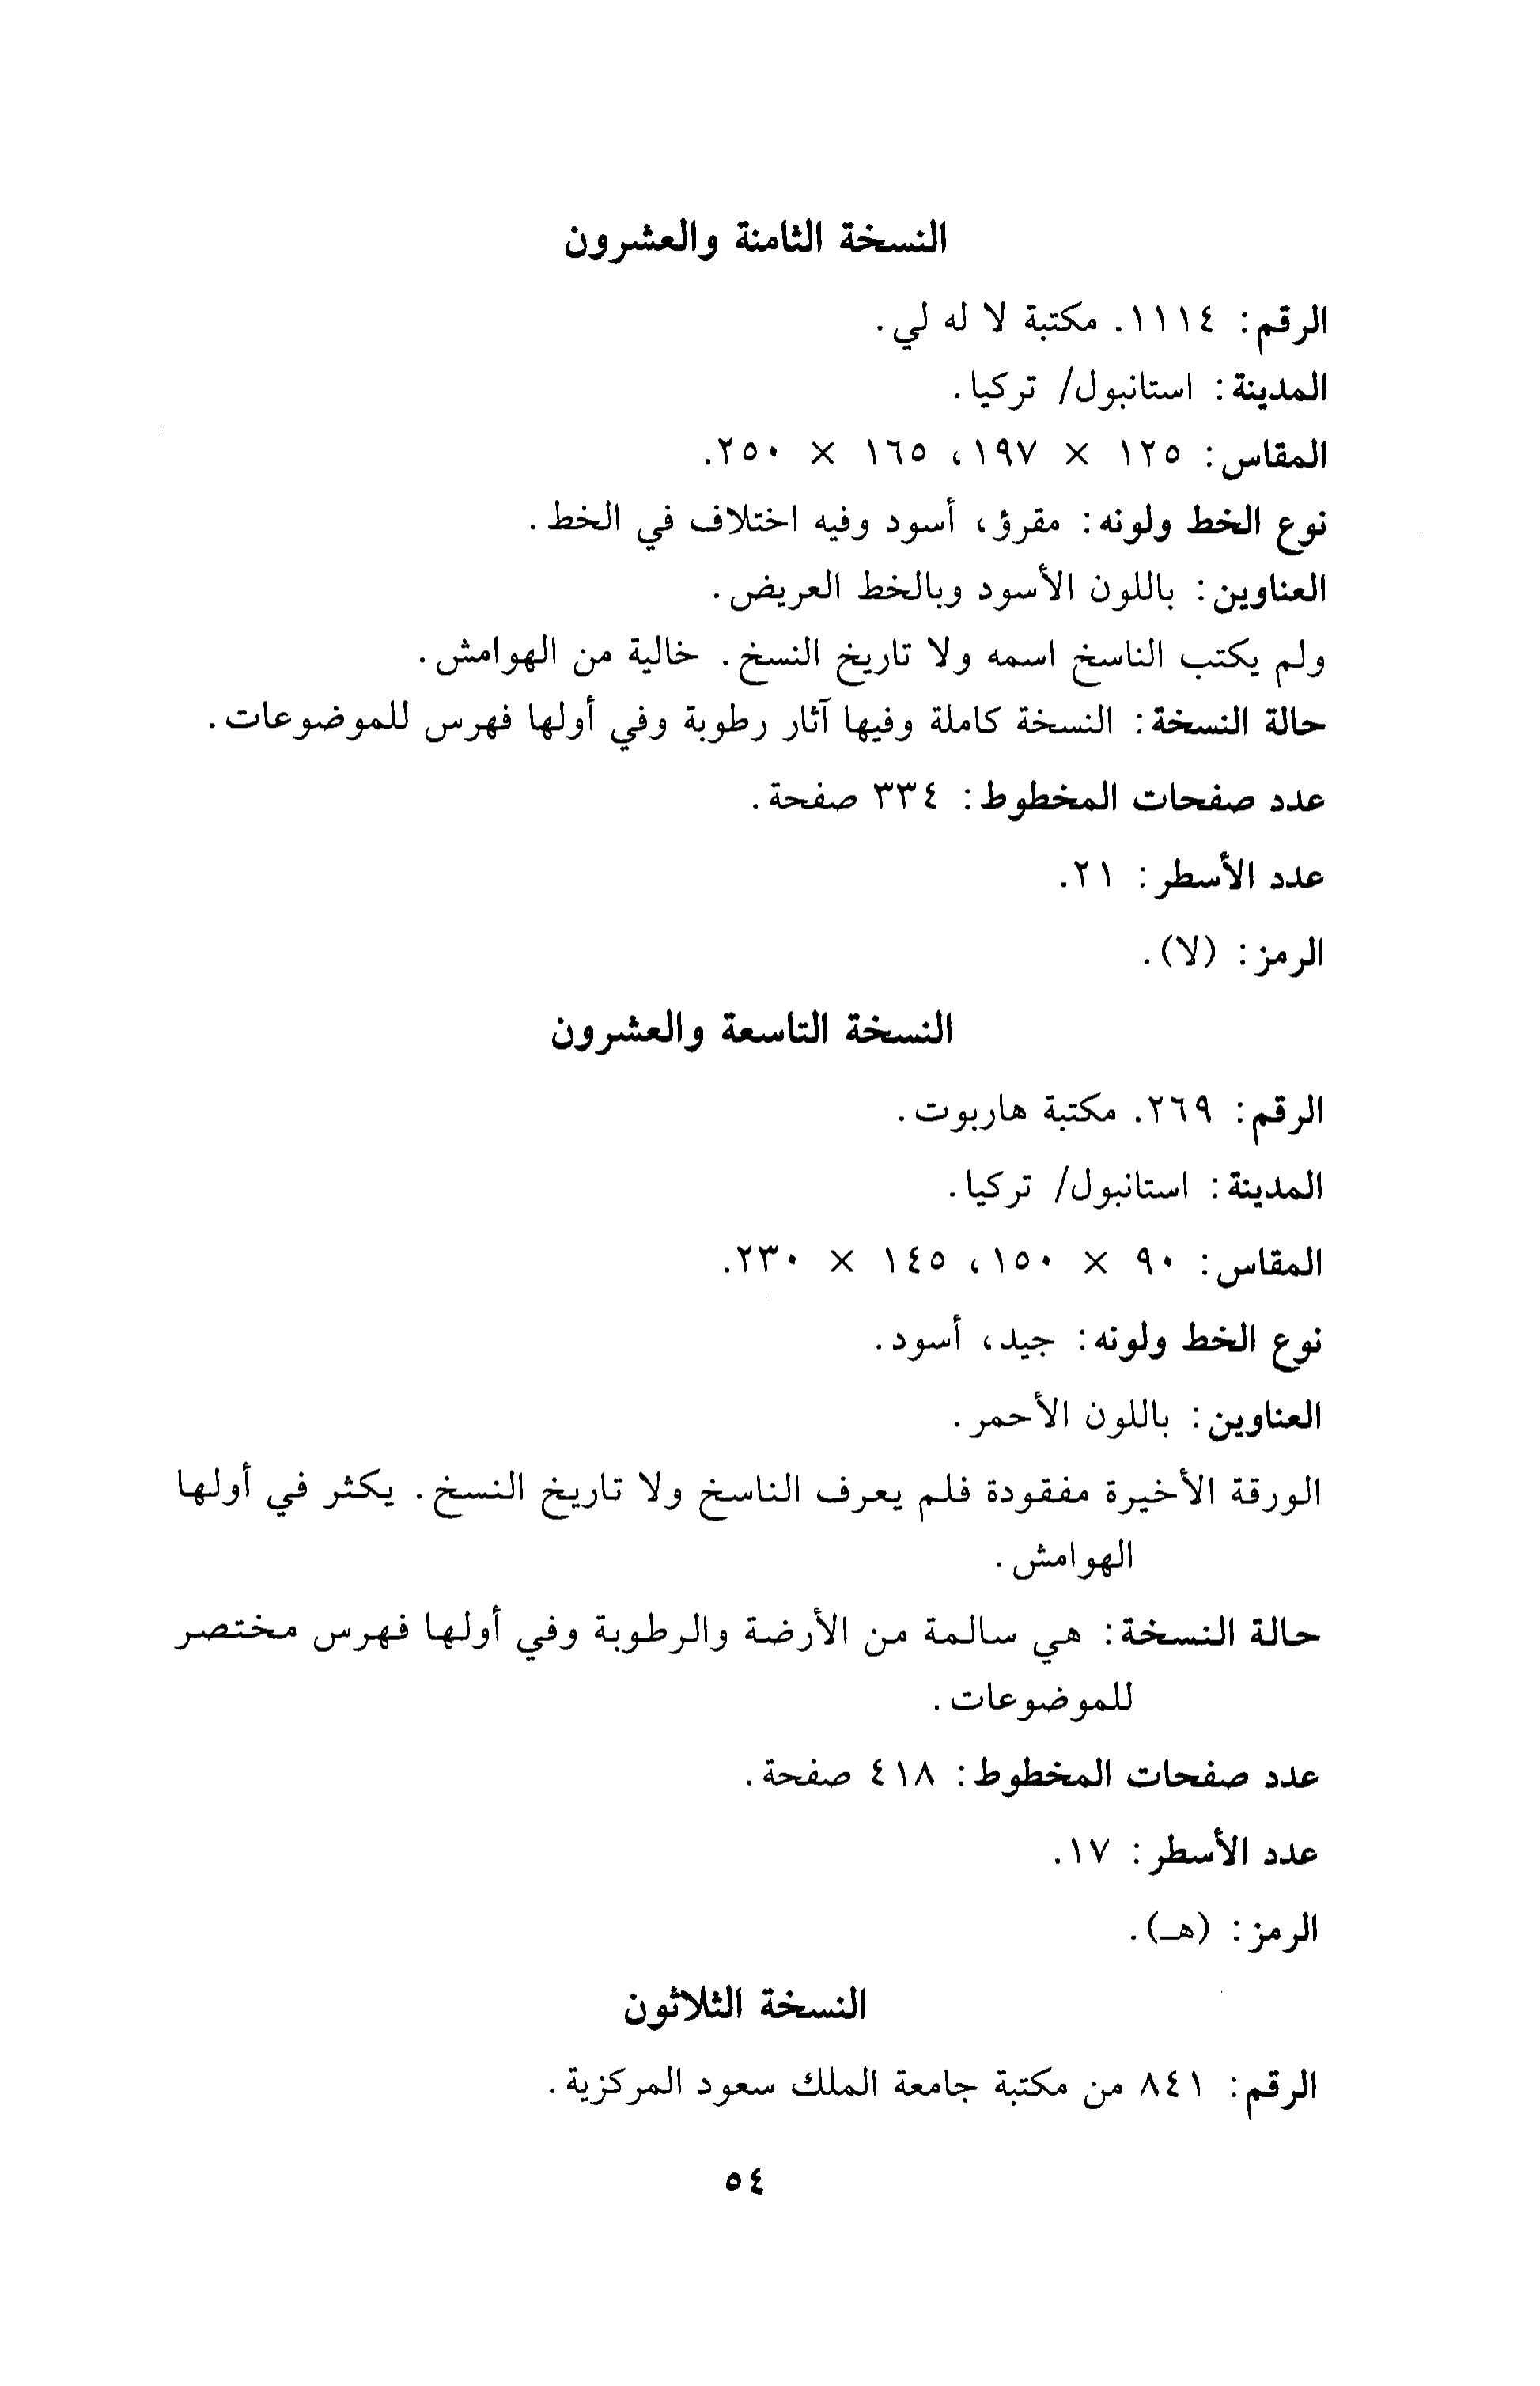 النسخة الثامنة والعشرون
الرقم: ١١١٤. مكتبة لا له لي.
المدينة: استانبول/ تركيا.
المقاس: ١٢٥ × ١٩٧، ١٦٥ × ٢٥٠.
نوع الخط ولونه: مقرؤ، أسود وفيه اختلاف في الخط.
العناوين: باللون الأسود وبالخط العريض.
ولم يكتب الناسخ اسمه ولا تاريخ النسخ. خالية من الهوامش.
حالة النسخة: النسخة كاملة وفيها آثار رطوبة وفي أولها فهرس للموضوعات.
عدد صفحات المخطوط: ٣٣٤ صفحة.
عدد الأسطر: ٢١.
الرمز: (لا).
النسخة التاسعة والعشرون
الرقم: ٢٦٩. مكتبة هاربوت.
المدينة: استانبول/ تركيا.
المقاس: ٩٠ × ١٥٠، ١٤٥ × ٢٣٠.
نوع الخط ولونه: جيد، أسود.
العناوين: باللون الأحمر.
الورقة الأخيرة مفقودة فلم يعرف الناسخ ولا تاريخ النسخ. يكثر في أولها
الهوامش.
حالة النسخة: هي سالمة من الأرضة والرطوبة وفي أولها فهرس مختصر
للموضوعات.
عدد صفحات المخطوط: ٤١٨ صفحة.
عدد الأسطر: ١٧.
الرمز: (هـ).
النسخة الثلاثون
الرقم: ٨٤١ من مكتبة جامعة الملك سعود المركزية.
٥٤